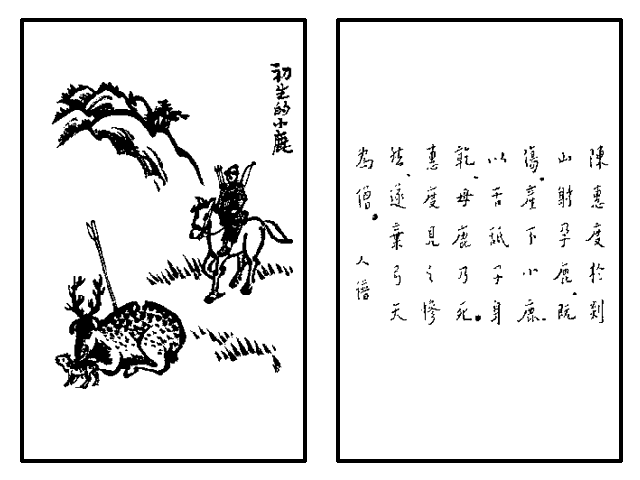 初生的小鹿
陳惠度於剡
山射孕鹿、既
傷。產下小鹿、
以舌舐子身
乾、母鹿乃死。
惠度見之慘
然、遂棄弓矢
為僧。 人譜